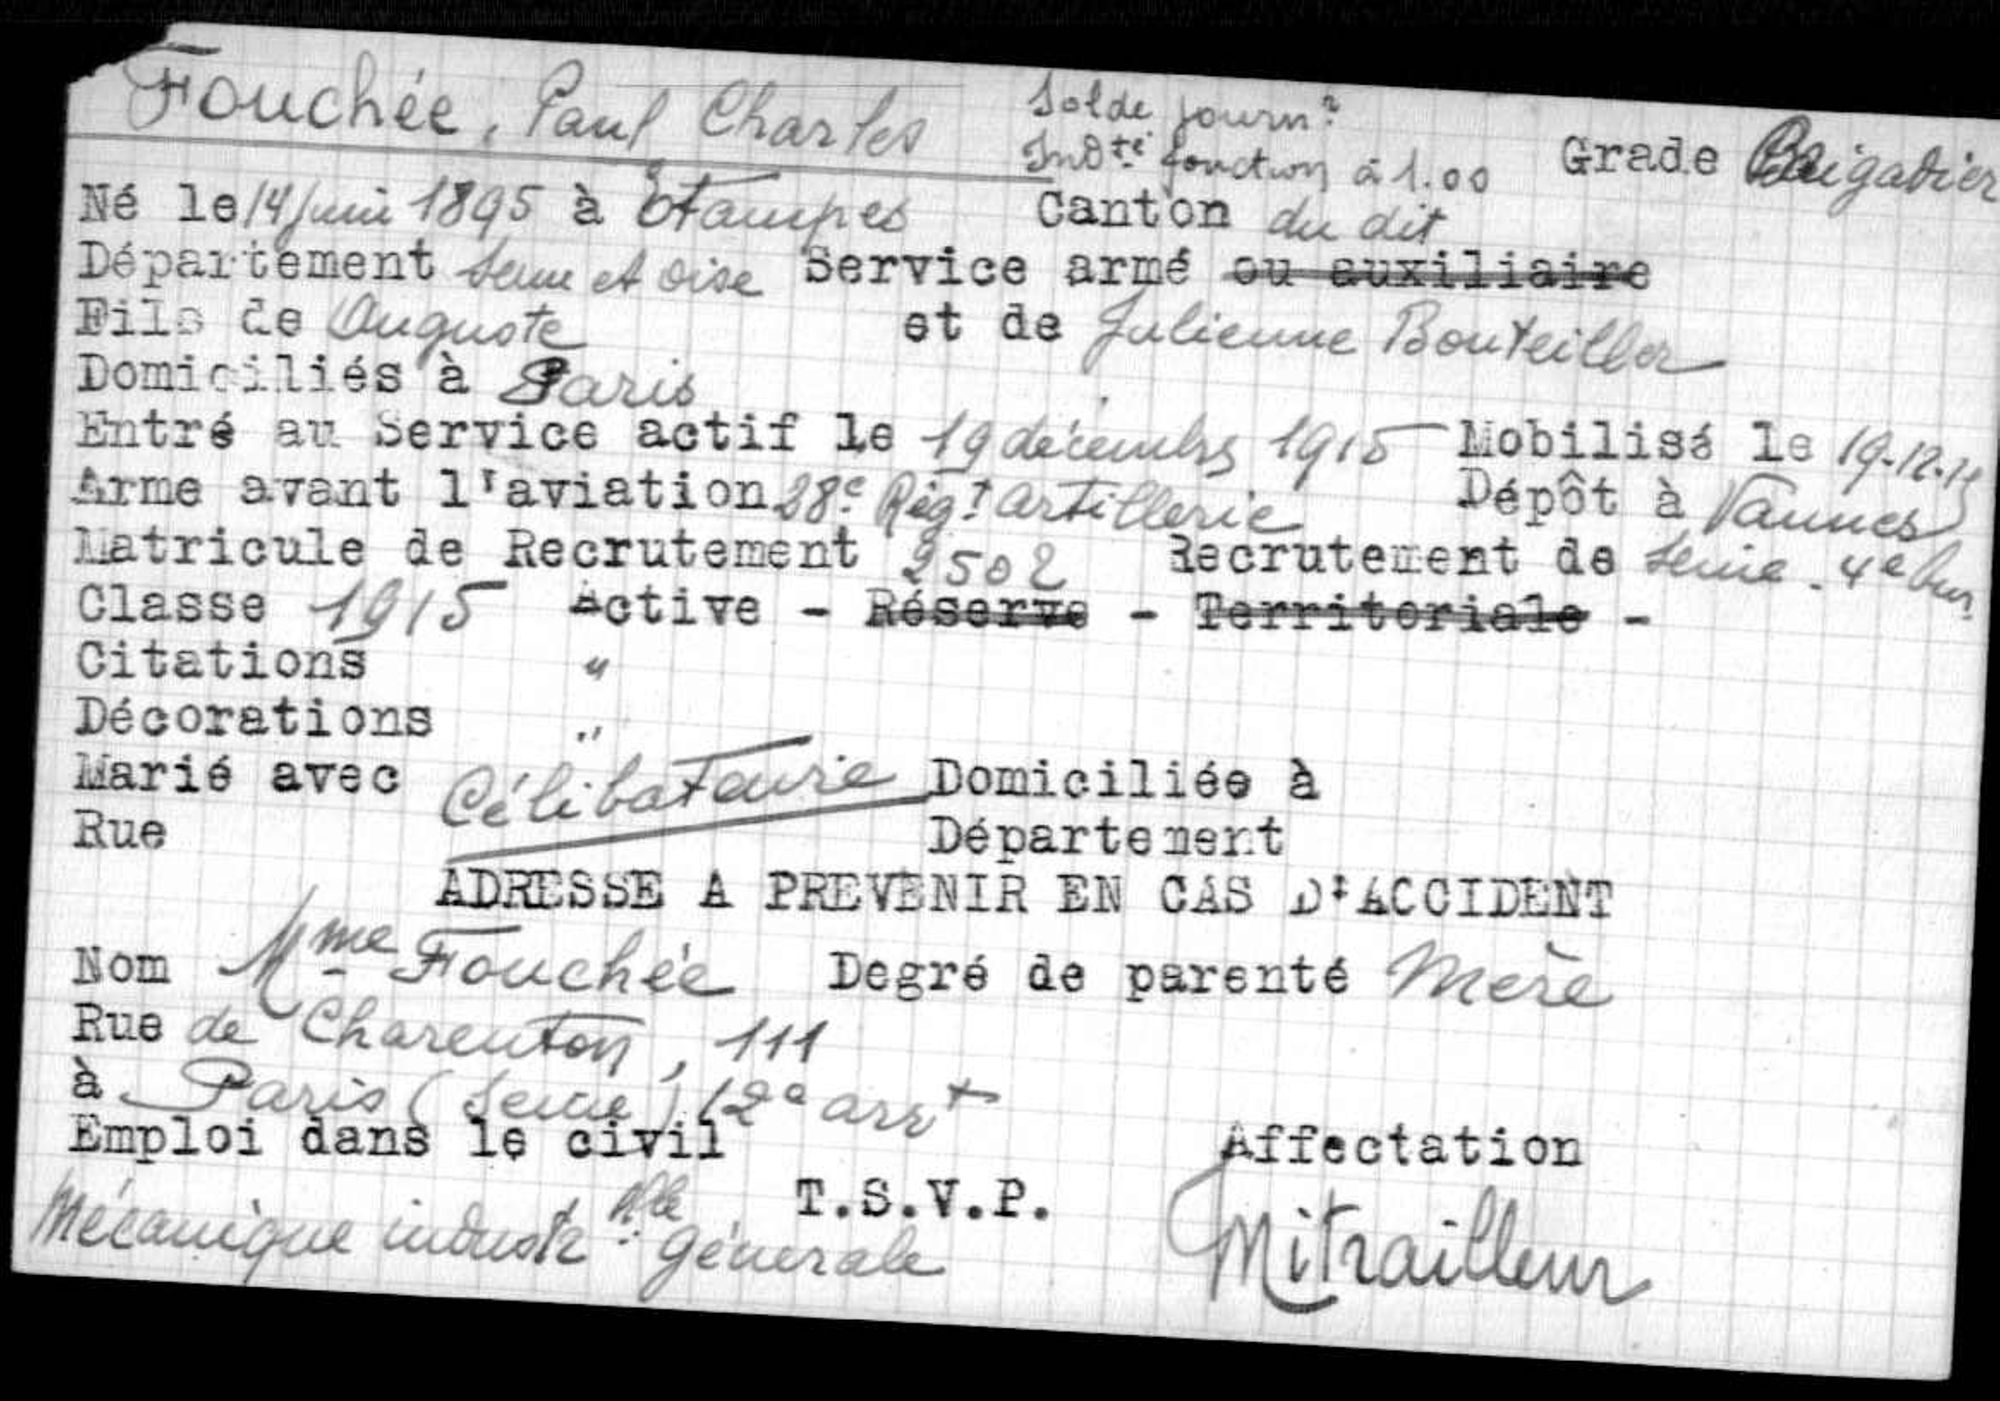 Fouchée, Paul Charles Solde journ.e Grade Brigadier
Indté fonction à 1.00
Né le 14 juin 1895 à Etampes Canton du dit
Département Seine et Oise Service armé ou auxiliaire
Fils de Auguste et de Julienne Bouteiller
Domiciliés à Paris
Entré au Service actif le 19 décembre 1915 Mobilisé le 19-12-15
Arme avant l'aviation 28e Régt Artillerie Dépôt à Vannes
Matricule de Recrutement 2502 Recrutement de Seine - 4e bur
Classe 1915 Active - Réserve - Territoriale -
Citations "
Décorations "
Marié avec Célibataire Domiciliée à
Rue Département
ADRESSE A PREVENIR EN CAS D'ACCIDENT
Nom Mme Fouchée Degré de parenté Mère
Rue de Charenton, 111
à Paris (Seine) 12e arrt
Emploi dans le civil Affectation
T.S.V.P.
Mécanique industrlle générale Mitrailleur